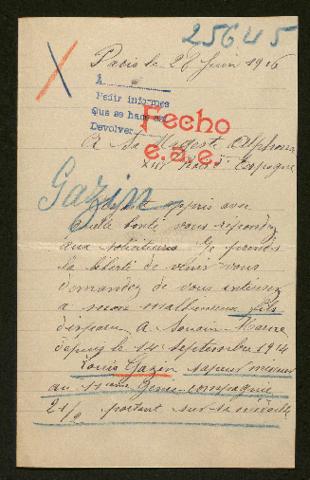 25645
Paris le 26 Juin 1916
A
Pedir informes
Que se haga
Devolver
Fecho
e.a.e.
A Sa Majesté Alphonse
XIII Roi d'Espagne
Gazin
appris avec
quelle bonté vous répondez
aux solliciteurs Je prends
la liberté de venir vous
demandez de vous interessez
a mon malheureux fils
disparu A Souain Marne
depuis le 14 septembre 1914
Louis Gazin sapeur mineur
au 1er Génie compagnie
21/2 portant sur sa médaille